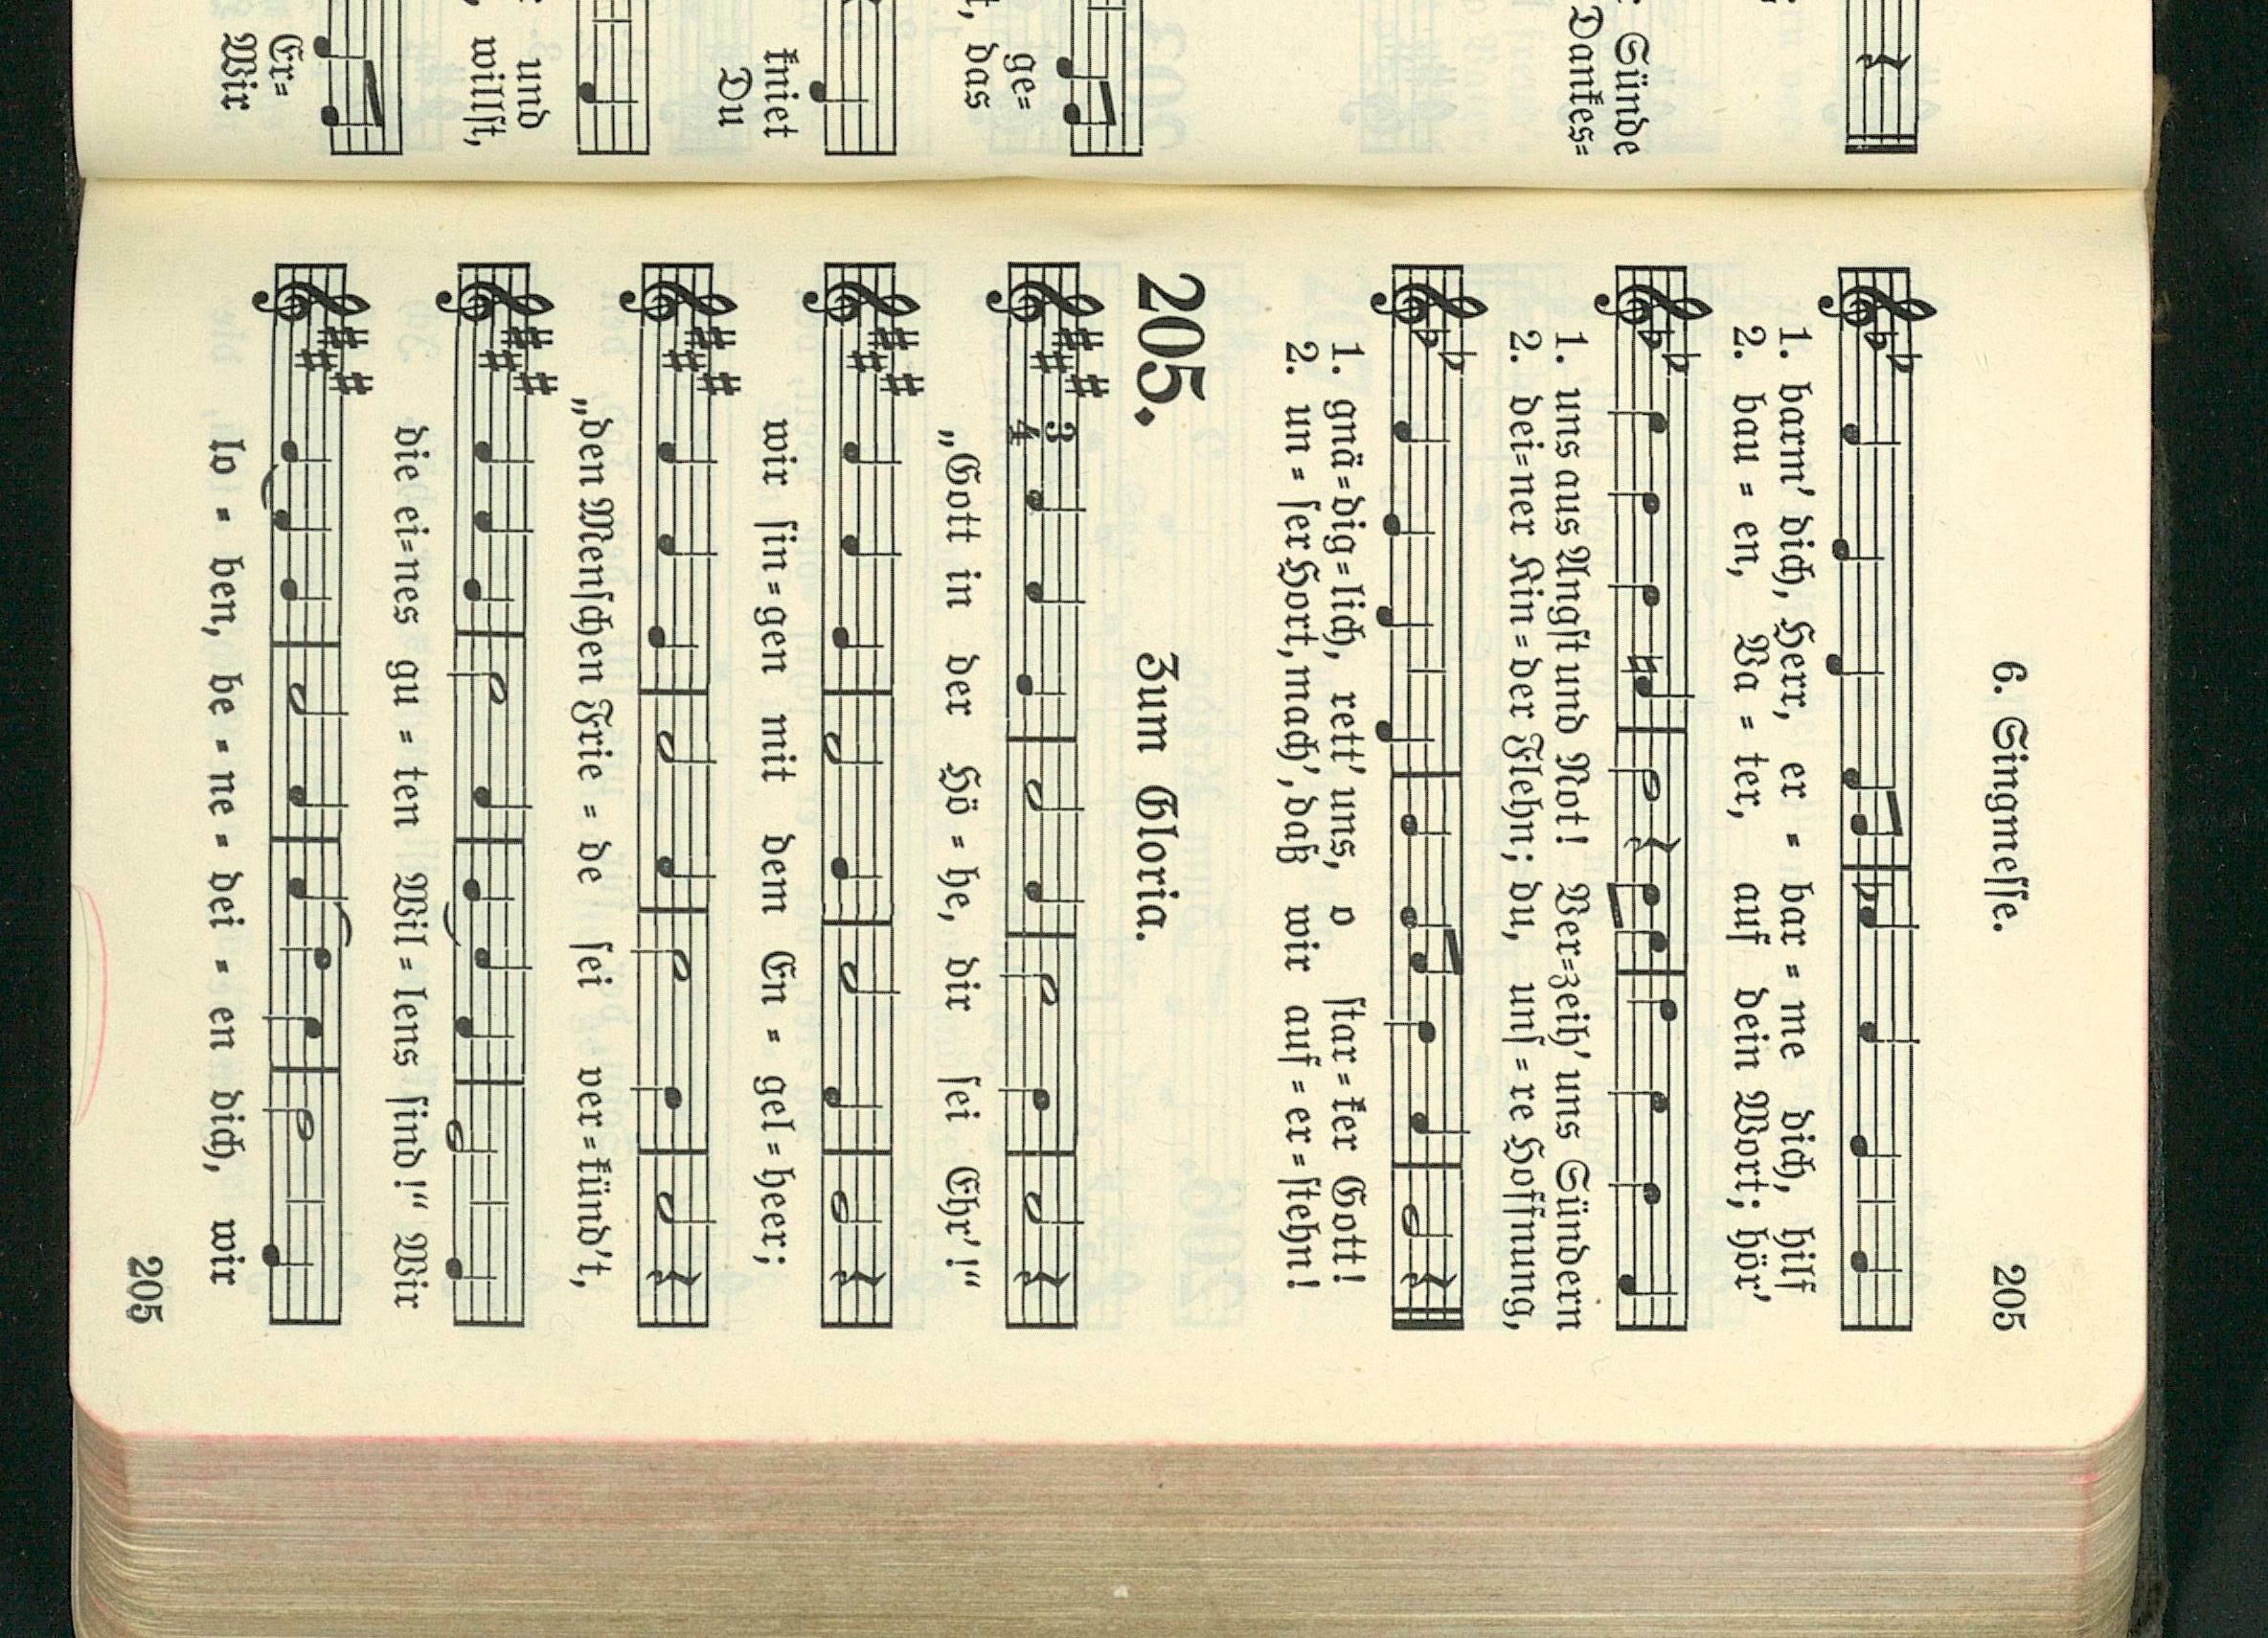 Er=
Wir
und
willst,
kniet
Du
ge=
das
Sünde
Dankes=
6. Singmesse. 205
1. barm' dich, Herr, er = bar = me dich, hilf
2. bau = en, Va = ter, auf dein Wort; hör'
1. uns aus Angst und Not! Ver=zeih' uns Sündern
2. dei=ner Kin=der Flehn; du, uns=re Hoffnung,
1. gnä=dig=lich, rett' uns, o star=ker Gott!
2. un=ser Hort, mach', daß wir auf=er=stehn!
205. Zum Gloria.
3
4
„Gott in der Hö = he, dir sei Ehr'!“
wir sin=gen mit dem En = gel=heer;
„den Menschen Frie = de sei ver=künd't,
die ei=nes gu = ten Wil=lens sind!“ Wir
lo = ben, be = ne = dei = en dich, wir
205